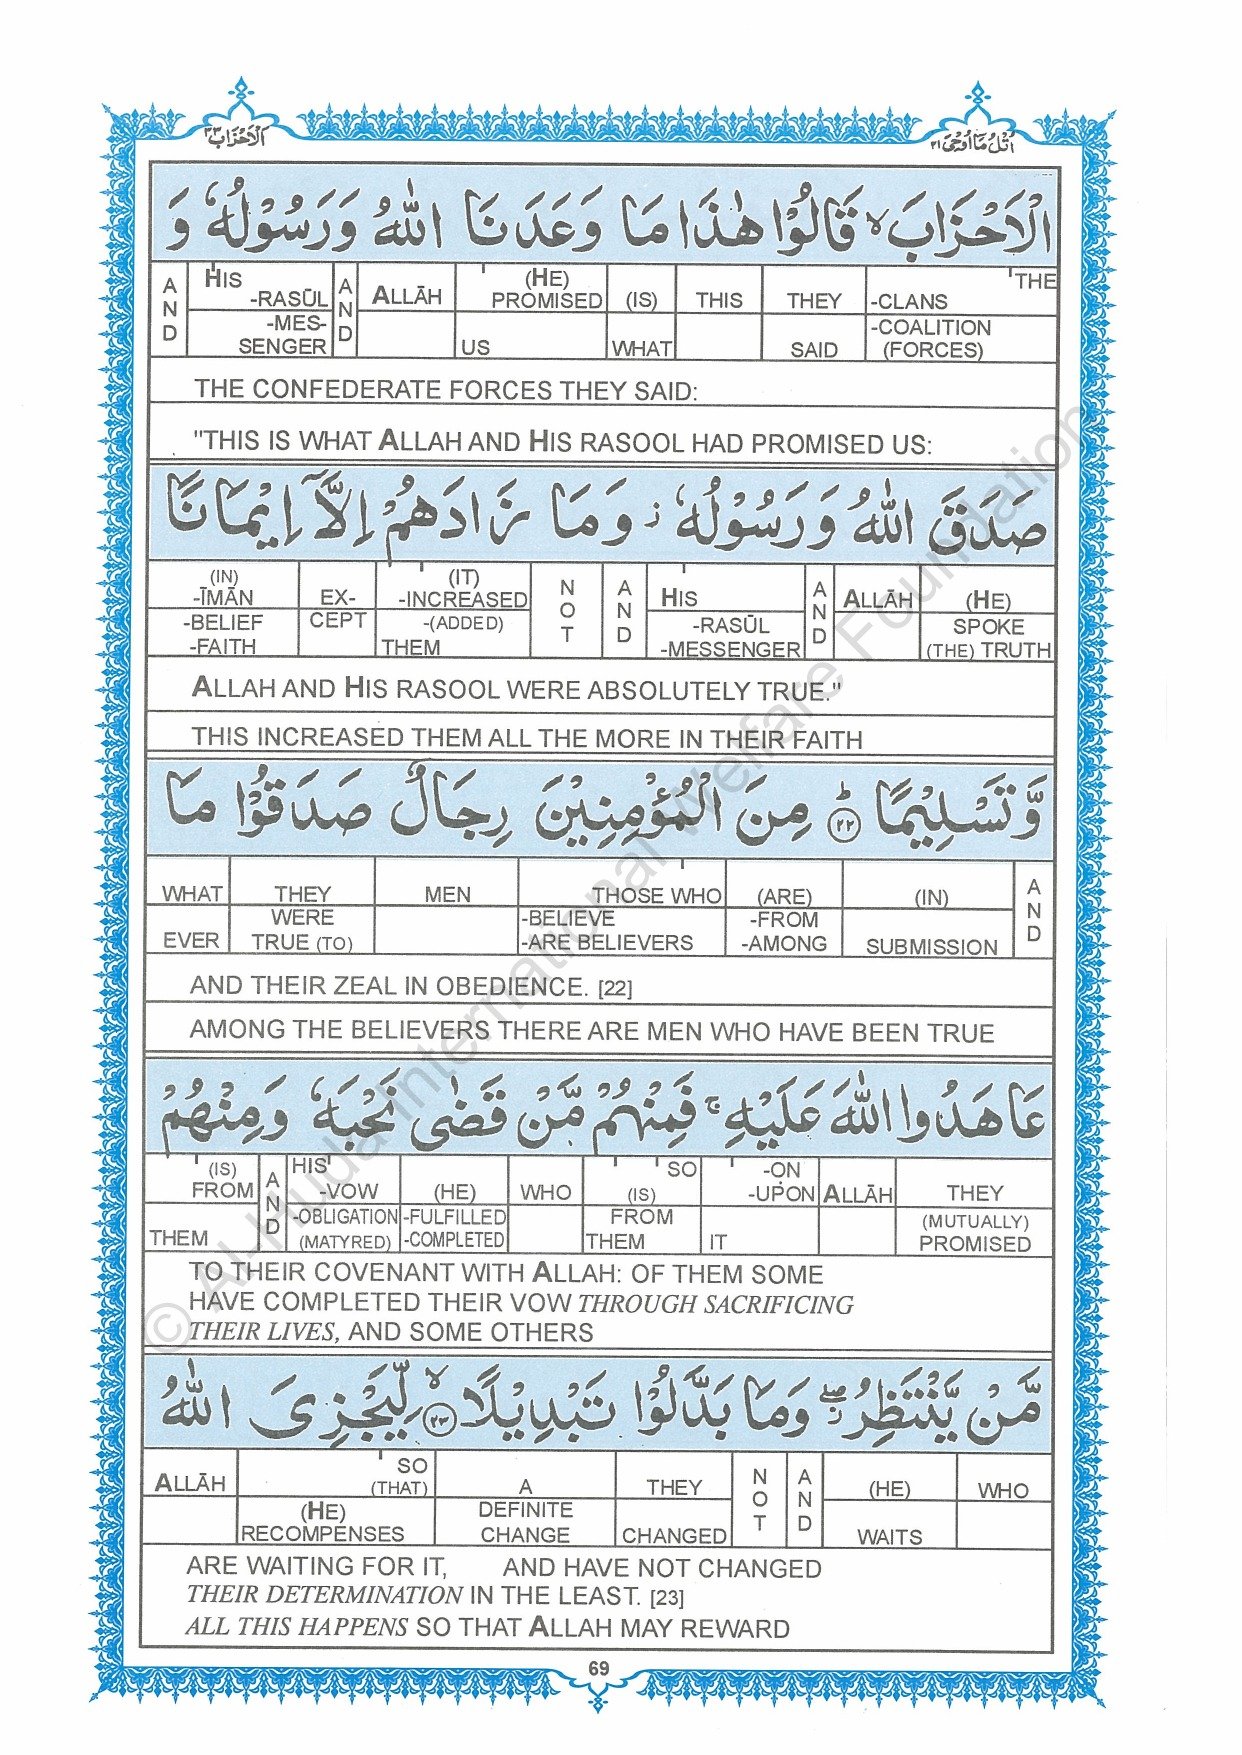 الاحزاب ٣٣
اتل ما اوحی ٢١
الْاَحْزَابَ ۙ قَالُوْا هٰذَا مَا وَعَدَنَا اللّٰهُ وَرَسُوْلُهٗ وَ
AND HIS -RASŪL -MESSENGER AND ALLĀH (HE) PROMISED US (IS) WHAT THIS THEY SAID THE -CLANS -COALITION (FORCES)
THE CONFEDERATE FORCES THEY SAID:
"THIS IS WHAT ALLAH AND HIS RASOOL HAD PROMISED US:
صَدَقَ اللّٰهُ وَرَسُوْلُهٗ ۫ وَمَا زَادَهُمْ اِلَّاۤ اِيْمَانًا
(IN) -ĪMĀN -BELIEF -FAITH EX- CEPT (IT) -INCREASED -(ADDED) THEM NOT AND HIS -RASŪL -MESSENGER AND ALLĀH (HE) SPOKE (THE) TRUTH
ALLAH AND HIS RASOOL WERE ABSOLUTELY TRUE."
THIS INCREASED THEM ALL THE MORE IN THEIR FAITH
وَّتَسْلِيْمًا ؕ ﴿٢٢﴾ مِنَ الْمُؤْمِنِيْنَ رِجَالٌ صَدَقُوْا مَا
WHAT EVER THEY WERE TRUE (TO) MEN THOSE WHO -BELIEVE -ARE BELIEVERS (ARE) -FROM -AMONG (IN) SUBMISSION AND
AND THEIR ZEAL IN OBEDIENCE. [22]
AMONG THE BELIEVERS THERE ARE MEN WHO HAVE BEEN TRUE
عَاهَدُوا اللّٰهَ عَلَيْهِ ۚ فَمِنْهُمْ مَّنْ قَضٰى نَحْبَهٗ وَمِنْهُمْ
(IS) FROM THEM AND HIS -VOW -OBLIGATION (MATYRED) (HE) -FULFILLED -COMPLETED WHO SO (IS) FROM THEM -ON -UPON IT ALLĀH THEY (MUTUALLY) PROMISED
TO THEIR COVENANT WITH ALLAH: OF THEM SOME
HAVE COMPLETED THEIR VOW THROUGH SACRIFICING
THEIR LIVES, AND SOME OTHERS
مَّنْ يَّنْتَظِرُ ۖ وَمَا بَدَّلُوْا تَبْدِيْلًا ۙ ﴿٢٣﴾ لِّيَجْزِىَ اللّٰهُ
ALLĀH SO (THAT) (HE) RECOMPENSES A DEFINITE CHANGE THEY CHANGED NOT AND (HE) WAITS WHO
ARE WAITING FOR IT, AND HAVE NOT CHANGED
THEIR DETERMINATION IN THE LEAST. [23]
ALL THIS HAPPENS SO THAT ALLAH MAY REWARD
69
© Al-Huda International Welfare Foundation